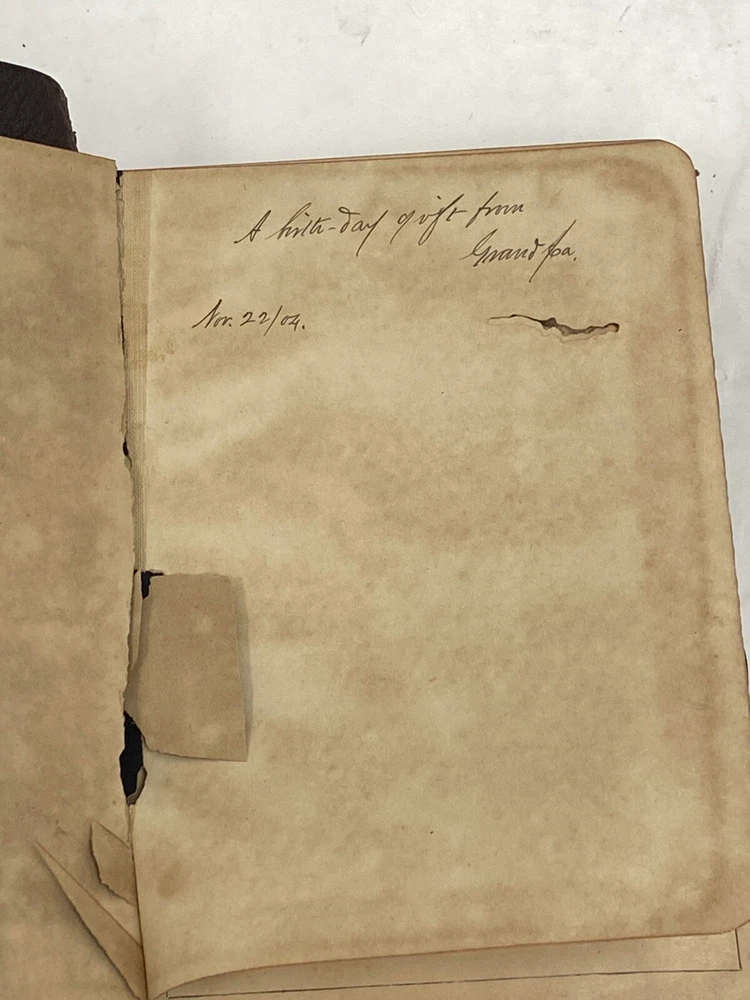 A birth-day gift from
Grandpa.
Nov. 22/04.